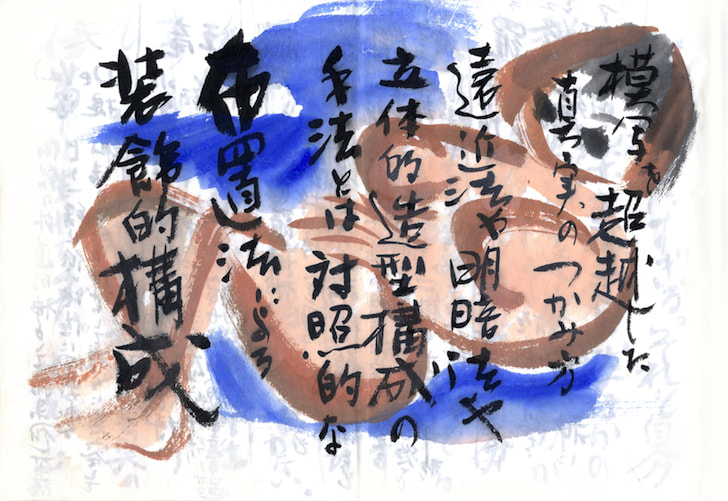 模写を超越した
真実のつかみ方
遠近法や明暗法や
立体的造型構成の
手法とは対照的な
布置法による
装飾的構成